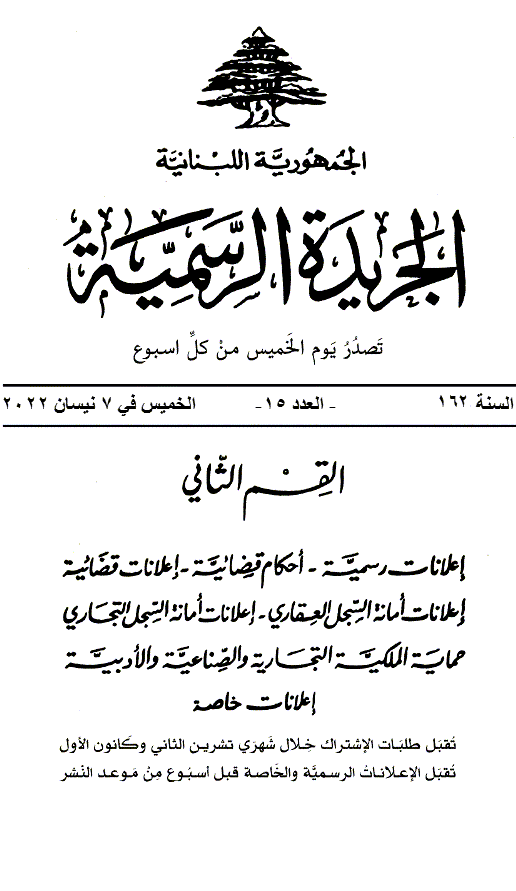 الجمهورية اللبنانية
الجريدة الرسمية
تَصدُرُ يَوم الخَميس منْ كلِّ اسبوع
السنة ١٦٢ - العدد ١٥- الخميس في ٧ نيسان ٢٠٢٢
القِسْم الثّاني
إعلانات رسميَّة - أحكام قضائيَّة - إعلانات قضائية
إعلانات أمانة السِّجل العِقاري - إعلانات أمانة السِّجل التجاري
حماية الملكيَّة التجارية والصِّناعيَّة والأدبيَّة
إعلانات خاصة
تُقبَل طلبَات الإشتراك خِلال شَهرَي تشرين الثاني وكَانون الأول
تُقبَل الإعلاناتُ الرسميَّة والخَاصة قبل أسبُوع مِنْ مَوعد النّشر